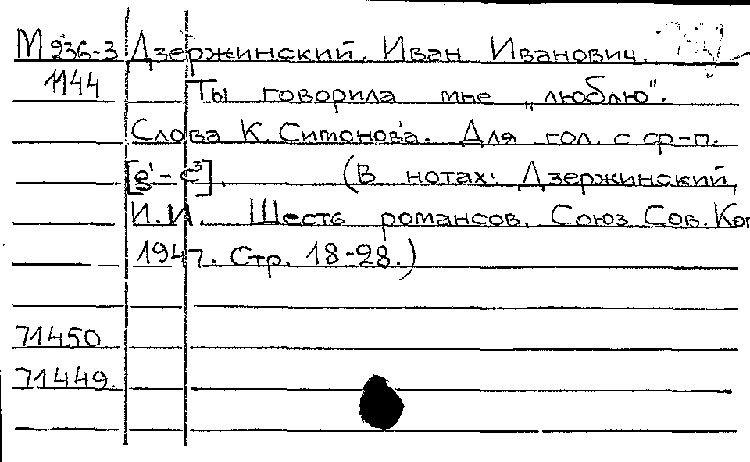 М 936-3 Дзержинский, Иван Иванович.
1144 Ты говорила мне „люблю".
Слова К. Симонова. Для гол. с ф-п.
[e¹ - c³]. (В нотах: Дзержинский,
И.И. Шесть романсов. Союз Сов. Ком
1947. Стр. 18-28.)
71450
71449.